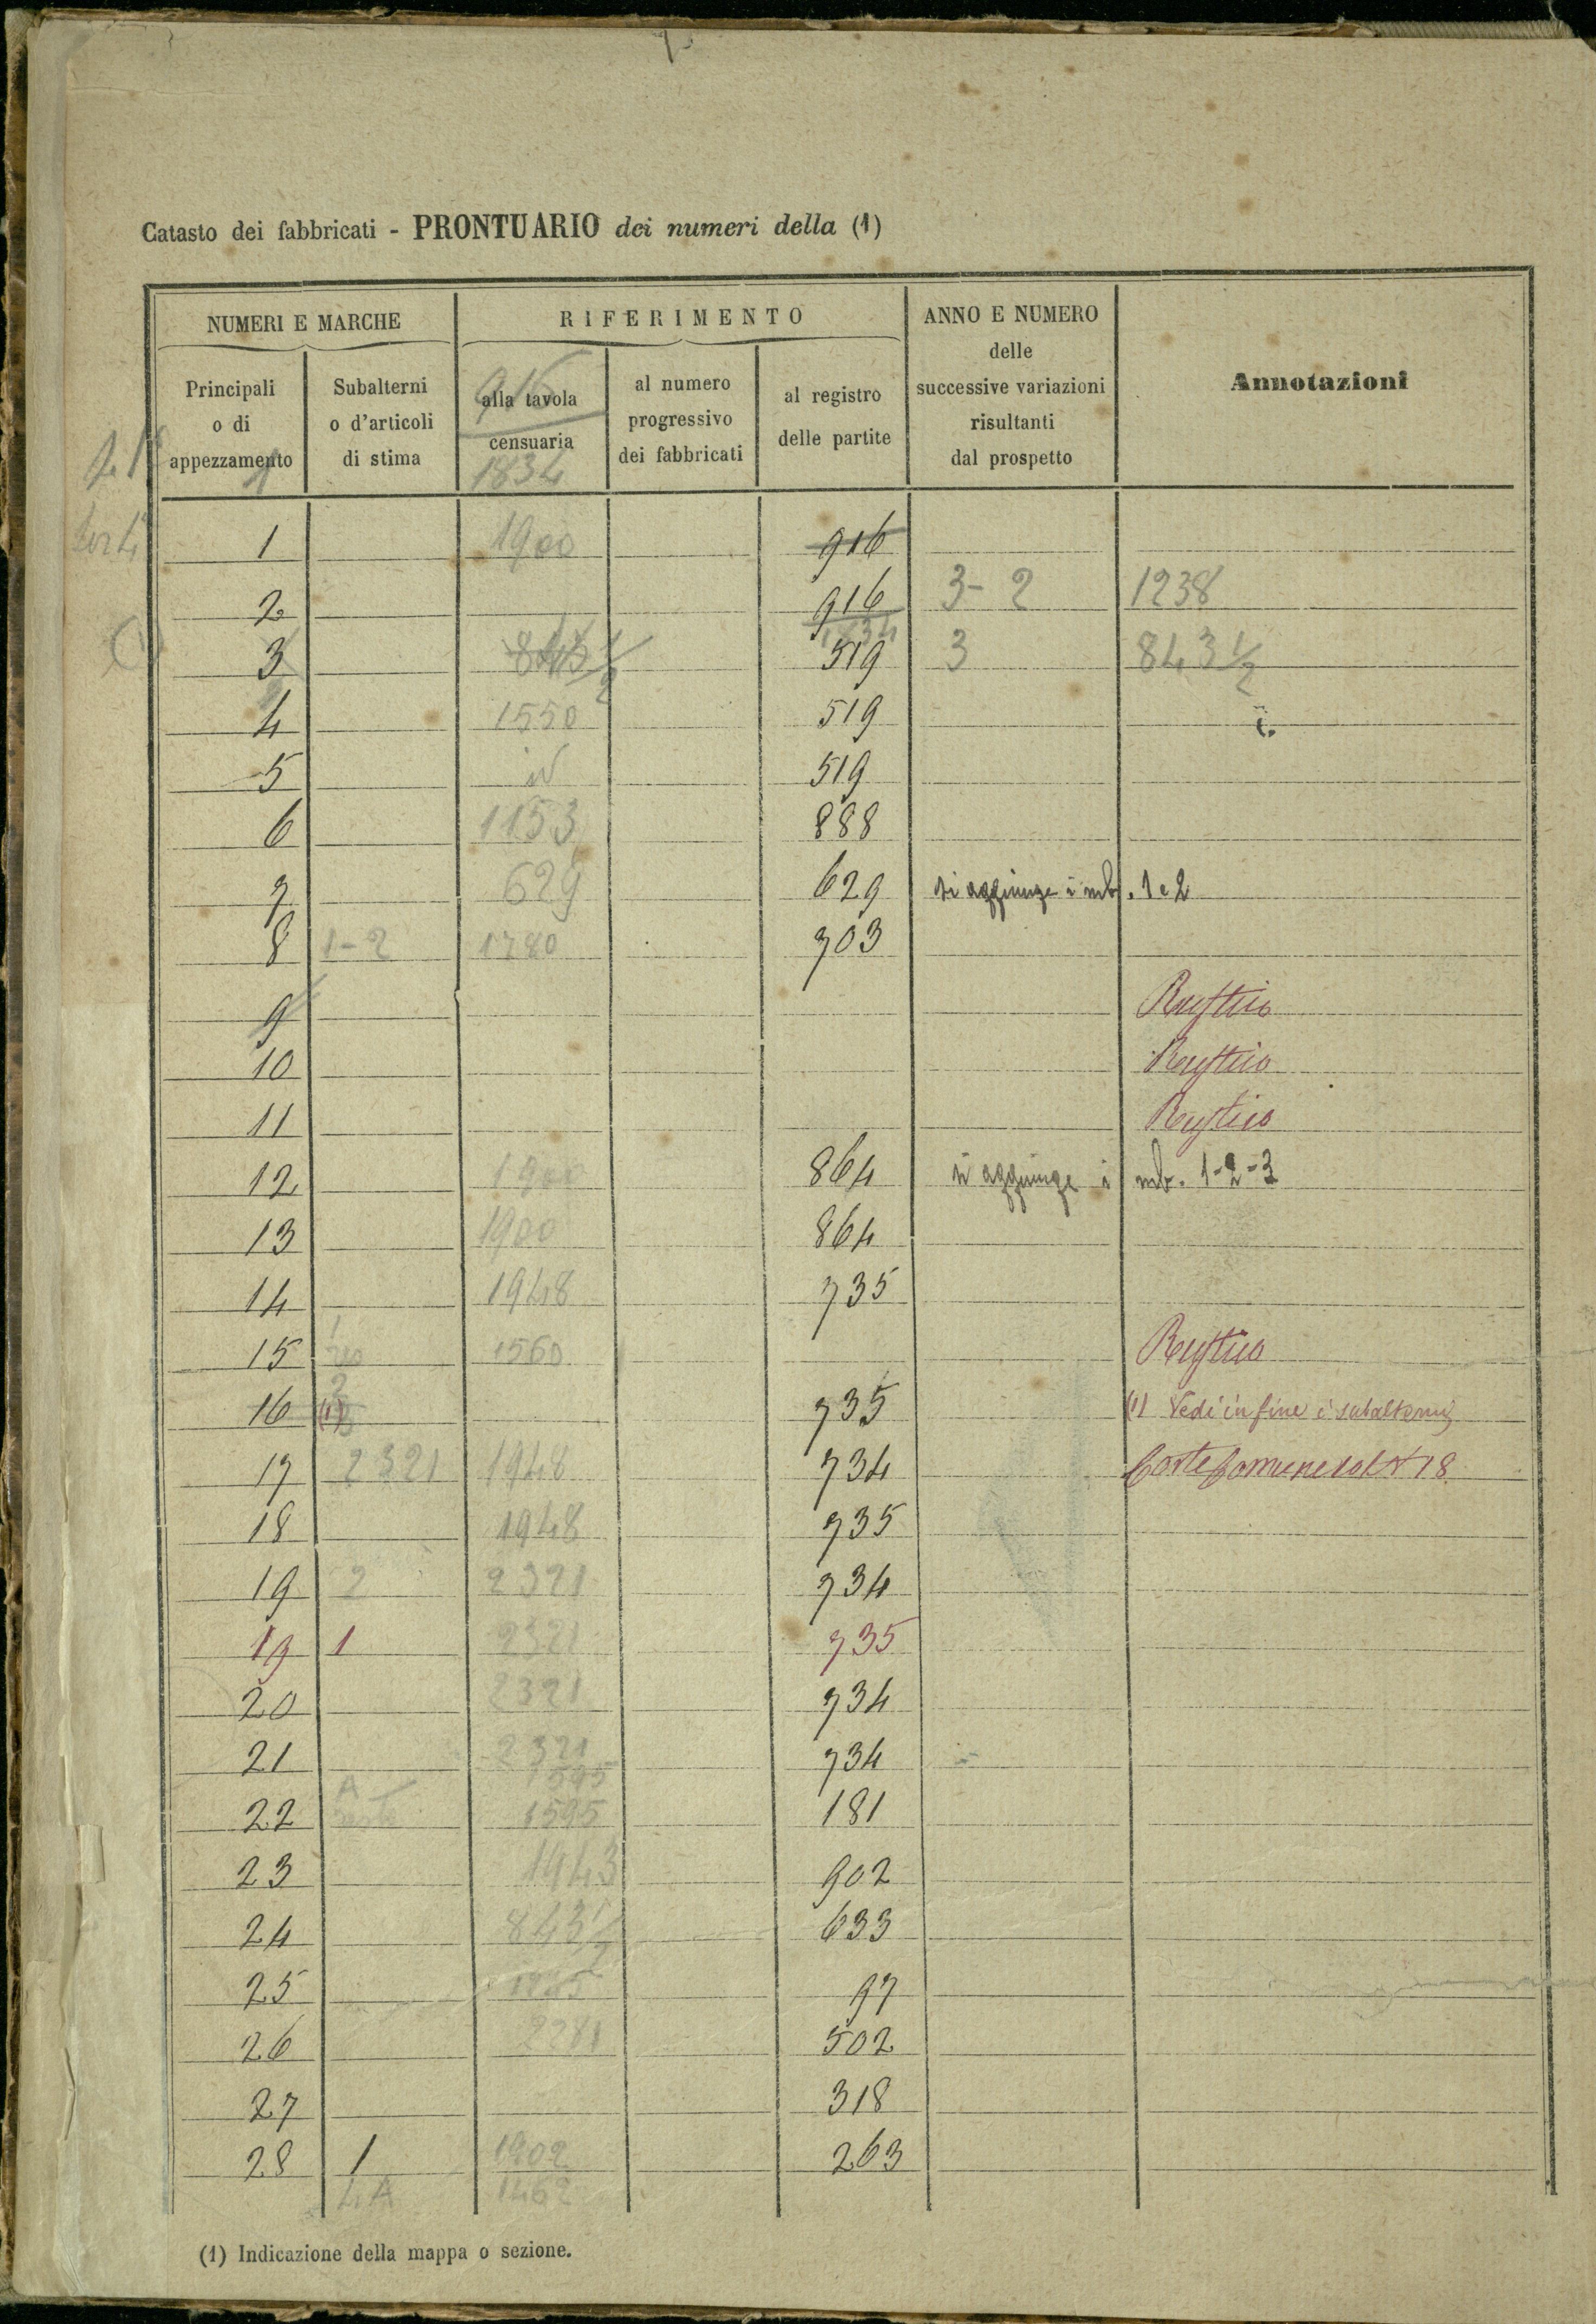 Catasto dei fabbricati - PRONTUARIO dei numeri della (1)
NUMERI E MARCHE
RIFERIMENTO
ANNO E NUMERO delle successive variazioni risultanti dal prospetto
Annotazioni
Principali o di appezzamento
Subalterni o d'articoli di stima
alla tavola censuaria
al numero progressivo dei fabbricati
al registro delle partite
916
1834
1 1900 916
2 916 3-2 1238
1834
3 843 1/2 519 3 843 1/2
4 1550 519
5 519
6 1153 888
7 629 629 si aggiunge i sub. 1 e 2
8 1-2 1780 703
9 Rustico
10 Rustico
11 Rustico
12 1900 864 si aggiunge i sub. 1-2-3
13 1900 864
14 1948 735
15 1 1560 Rustico
16 (1) 735 (1) Vedi in fine i subalterni
17 2321 1948 734 Corte Comune col N 18
18 1948 735
19 2 2321 734
19 1 2321 735
20 2321 734
21 2321 734
1595
22 A 1595 181
23 1943 902
24 843 1/2 633
25 97
26 2281 502
27 318
28 1 1902 263
4A 1462
(1) Indicazione della mappa o sezione.